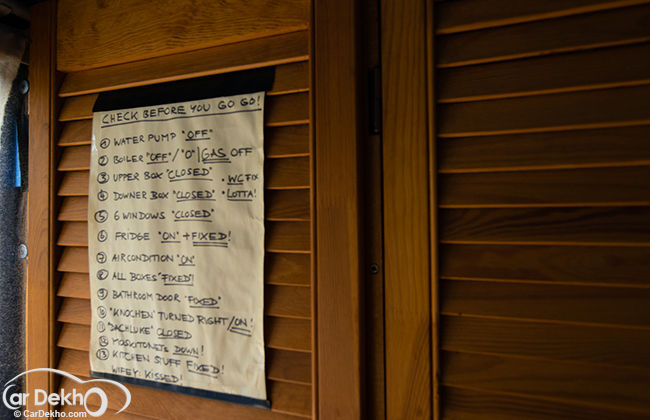 CHECK BEFORE YOU GO GO!
① WATER PUMP "OFF"
② BOILER "OFF"/"O"|GAS OFF
③ UPPER BOX "CLOSED" • WC FIX
④ DOWNER BOX "CLOSED" • LOTTA!
⑤ 6 WINDOWS "CLOSED"
⑥ FRIDGE "ON" + FIXED!
⑦ AIRCONDITION "ON"
⑧ ALL BOXES "FIXED"!
⑨ BATHROOM DOOR "FIXED"
⑩ "KNOCHEN" TURNED RIGHT/ON!
⑪ "DACHLUKE" CLOSED
⑫ MOSKITONETS DOWN!
⑬ KITCHEN STUFF FIXED!
WIFEY: KISSED!
CarDekho
© CarDekho.com